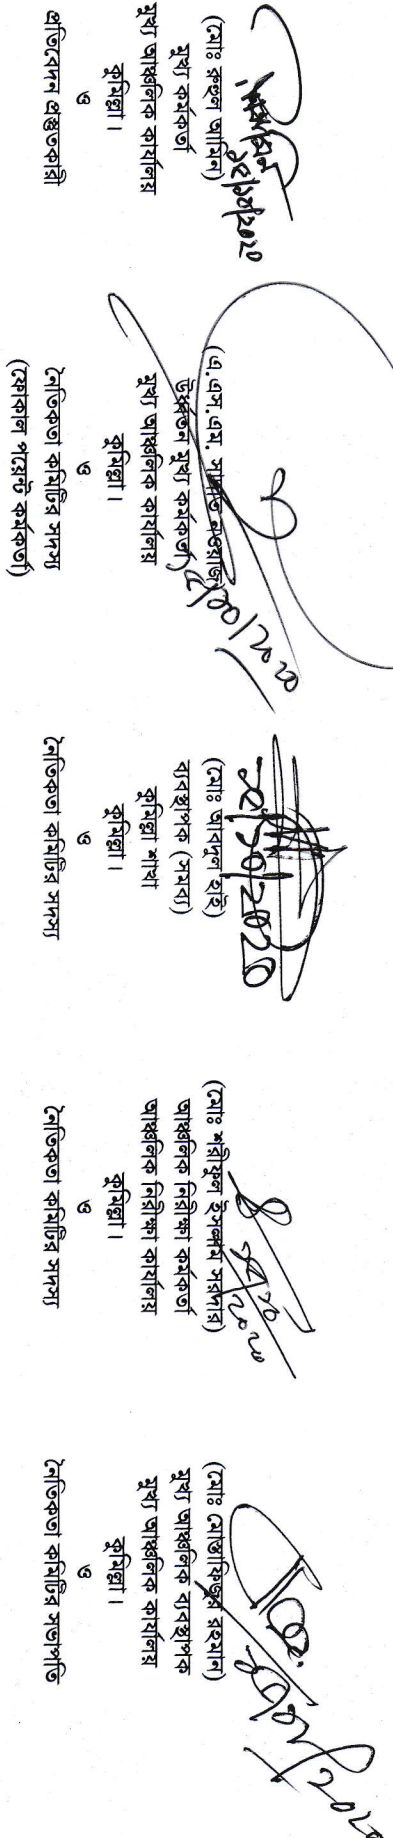 (মোঃ রুহুল আমিন)
মুখ্য কর্মকর্তা
মুখ্য আঞ্চলিক কার্যালয়
কুমিল্লা।
ও
প্রতিবেদন প্রস্তুতকারী
(এ.এস.এম
উর্ধ্বতন মুখ্য কর্মকর্তা)
মুখ্য আঞ্চলিক কার্যালয়
কুমিল্লা।
ও
নৈতিকতা কমিটির সদস্য
(ফোকাল পয়েন্ট কর্মকর্তা)
(মোঃ আবদুল হাই)
ব্যবস্থাপক
কুমিল্লা শাখা
কুমিল্লা।
ও
নৈতিকতা কমিটির সদস্য
(মোঃ শরীফুল ইসলাম সরদার)
আঞ্চলিক নিরীক্ষা কর্মকর্তা
আঞ্চলিক নিরীক্ষা কার্যালয়
কুমিল্লা।
ও
নৈতিকতা কমিটির সদস্য
(মোঃ মোস্তাফিজুর রহমান)
মুখ্য আঞ্চলিক ব্যবস্থাপক
মুখ্য আঞ্চলিক কার্যালয়
কুমিল্লা।
ও
নৈতিকতা কমিটির সভাপতি